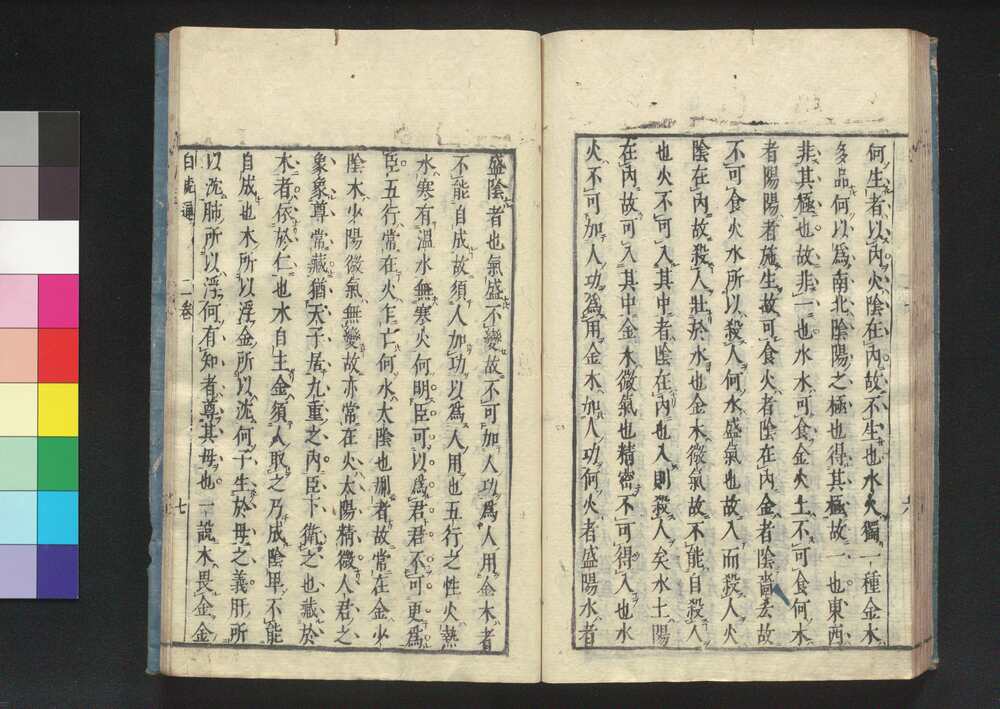 何生者以内火陰在内故不生也水火獨一種金木
多品何以爲南北陰陽之極也得其極故一也東西
非其極也故非一也水木可食金火土不可食何木
者陽陽者施生故可食火者陰在内金者陰嗇吝故
不可食火水所以殺人何水盛氣也故入而殺人火
陰在内故殺人壯於水也金木微氣故不能自殺人
也火不可入其中者陰在内也入則殺人矣水土陽
在内故可入其中金木微氣也精密不可得入也水
火不可加人功爲用金木加人功何火者盛陽水者
盛陰者也氣盛不變故不可加人功爲人用金木者
不能自成故須人加功以爲人用也五行之性火熱
水寒有溫水無寒火何明臣可以爲君君不可更爲
臣五行常在火乍亡何水太陰也刑者故常在金少
陰木少陽微氣無變故亦常在火太陽精微人君之
象象尊常藏猶天子居九重之内臣下衛之也藏於
木者依於仁也水自主金須人取之乃成陰卑不能
自成也木所以浮金所以沈何子生於母之義肝所
以沈肺所以浮何有知者尊其母也一說木畏金金
白虎通 二卷 七